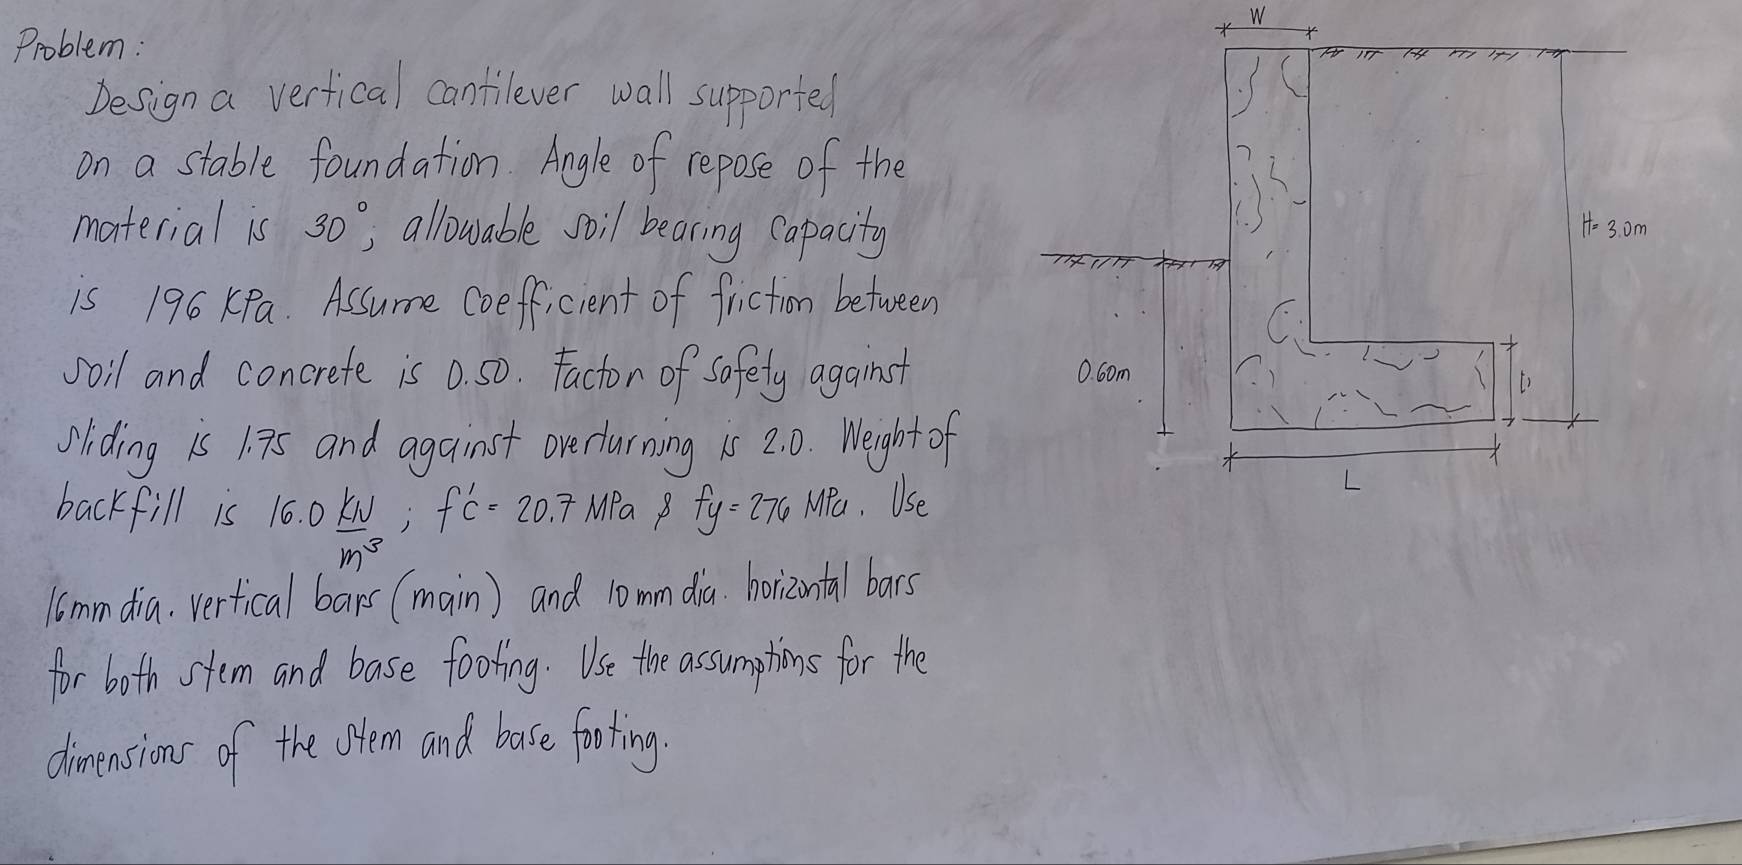 Problem:
Design a vertical cantilever wall supported
on a stable foundation. Angle of repose of the
material is 30°; allowable soil bearing capacity
is 196 KPa. Assume coefficient of friction between
soil and concrete is 0.50. Factor of safety against
sliding is 1.75 and against overturning is 2.0. Weight of
backfill is 16.0 kN/m³; f'c = 20.7 MPa & fy = 276 MPa. Use
16mm dia. vertical bars (main) and 10mm dia. horizontal bars
for both stem and base footing. Use the assumptions for the
dimensions of the stem and base footing.
W
H= 3.0m
0.60m
t
L